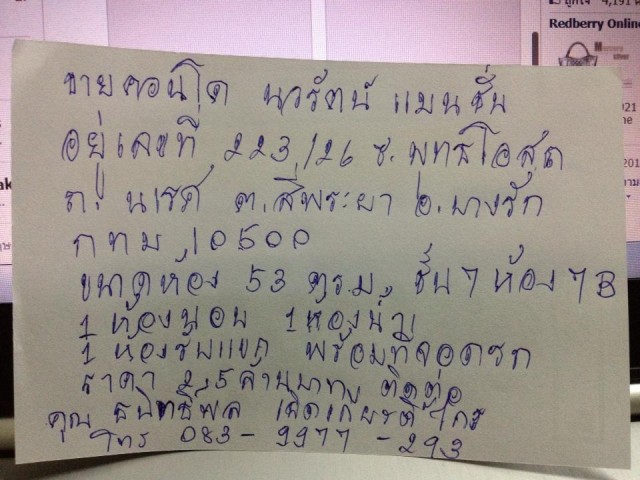 Redberry Online
ขายคอนโด นวรัตน์ แมนชั่น
อยู่เลขที่ 223/26 ซ. พุทธโอสถ
ถ. นเรศ ต.สี่พระยา อ.บางรัก
กทม 10500
ขนาดห้อง 53 ตร.ม. ชั้น 7 ห้อง 7B
1 ห้องนอน 1 ห้องน้ำ
1 ห้องรับแขก พร้อมที่จอดรถ
ราคา 2.5 ล้านบาท ติดต่อ
คุณ
โทร 083-9977-293